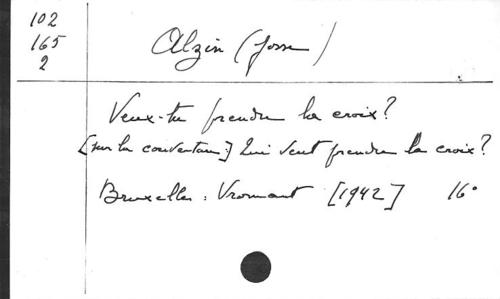 102
165
2
Alzin (Josse)
Veux-tu prendre la croix?
[sur la couverture:] Qui veut prendre la croix?
Bruxelles: Vromant [1942] 16°